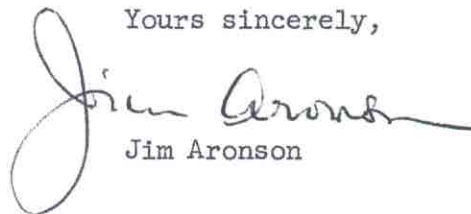 Yours sincerely,
Jim Aronson
Jim Aronson